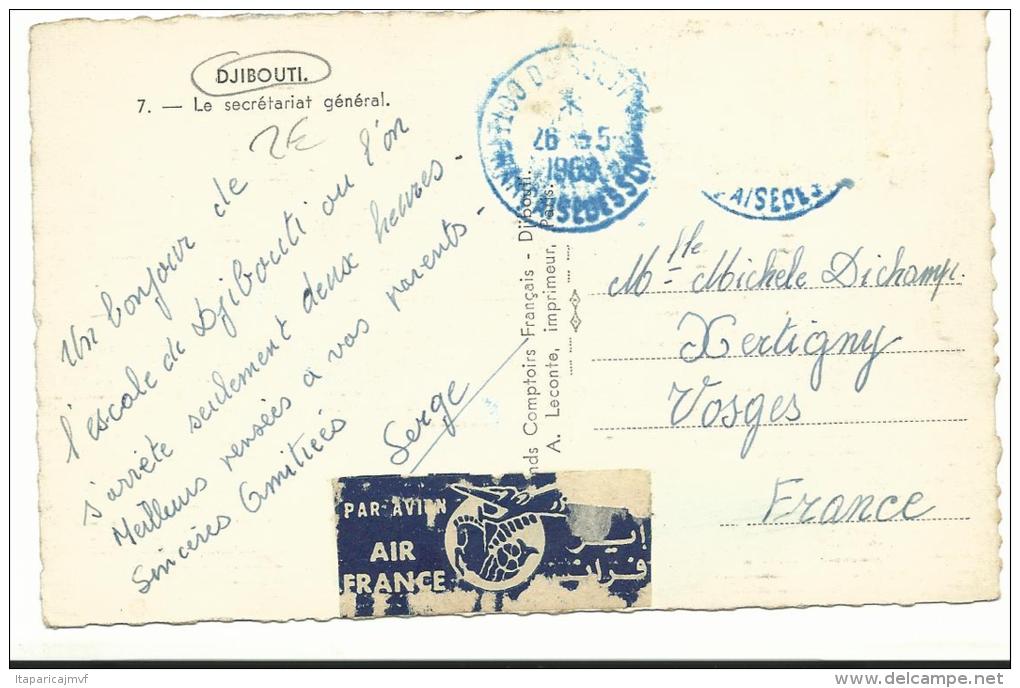 DJIBOUTI.
7. — Le secrétariat général.
2€
Un bonjour de
l'escale de Djibouti ou l'on
s'arrête seulement deux heures -
Meilleurs pensées à vos parents -
Sincères Amitiés
Serge
26 5
1969
AISEDES SOM
AISEDES
nds Comptoirs Français - Djibouti.
A. Leconte, imprimeur, Paris.
Mlle Michèle Dichamp.
Xertigny
Vosges
France
PAR AVION
AIR
FRANCE
اير
فرانس
ltaparicajmvf
delcampe.net